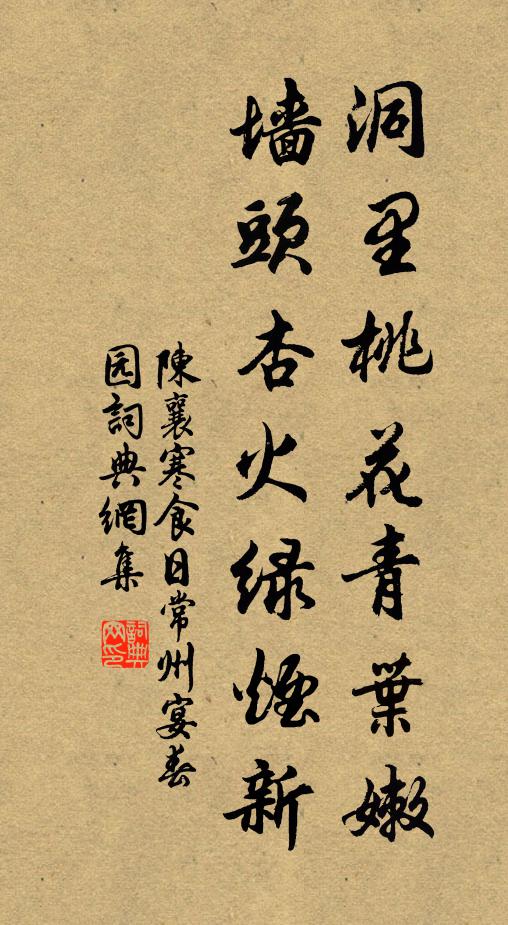 洞里桃花青葉嫩
墙頭杏火緑煙新
陳襄寒食日常州宴春
园詞典網集
詞典网印